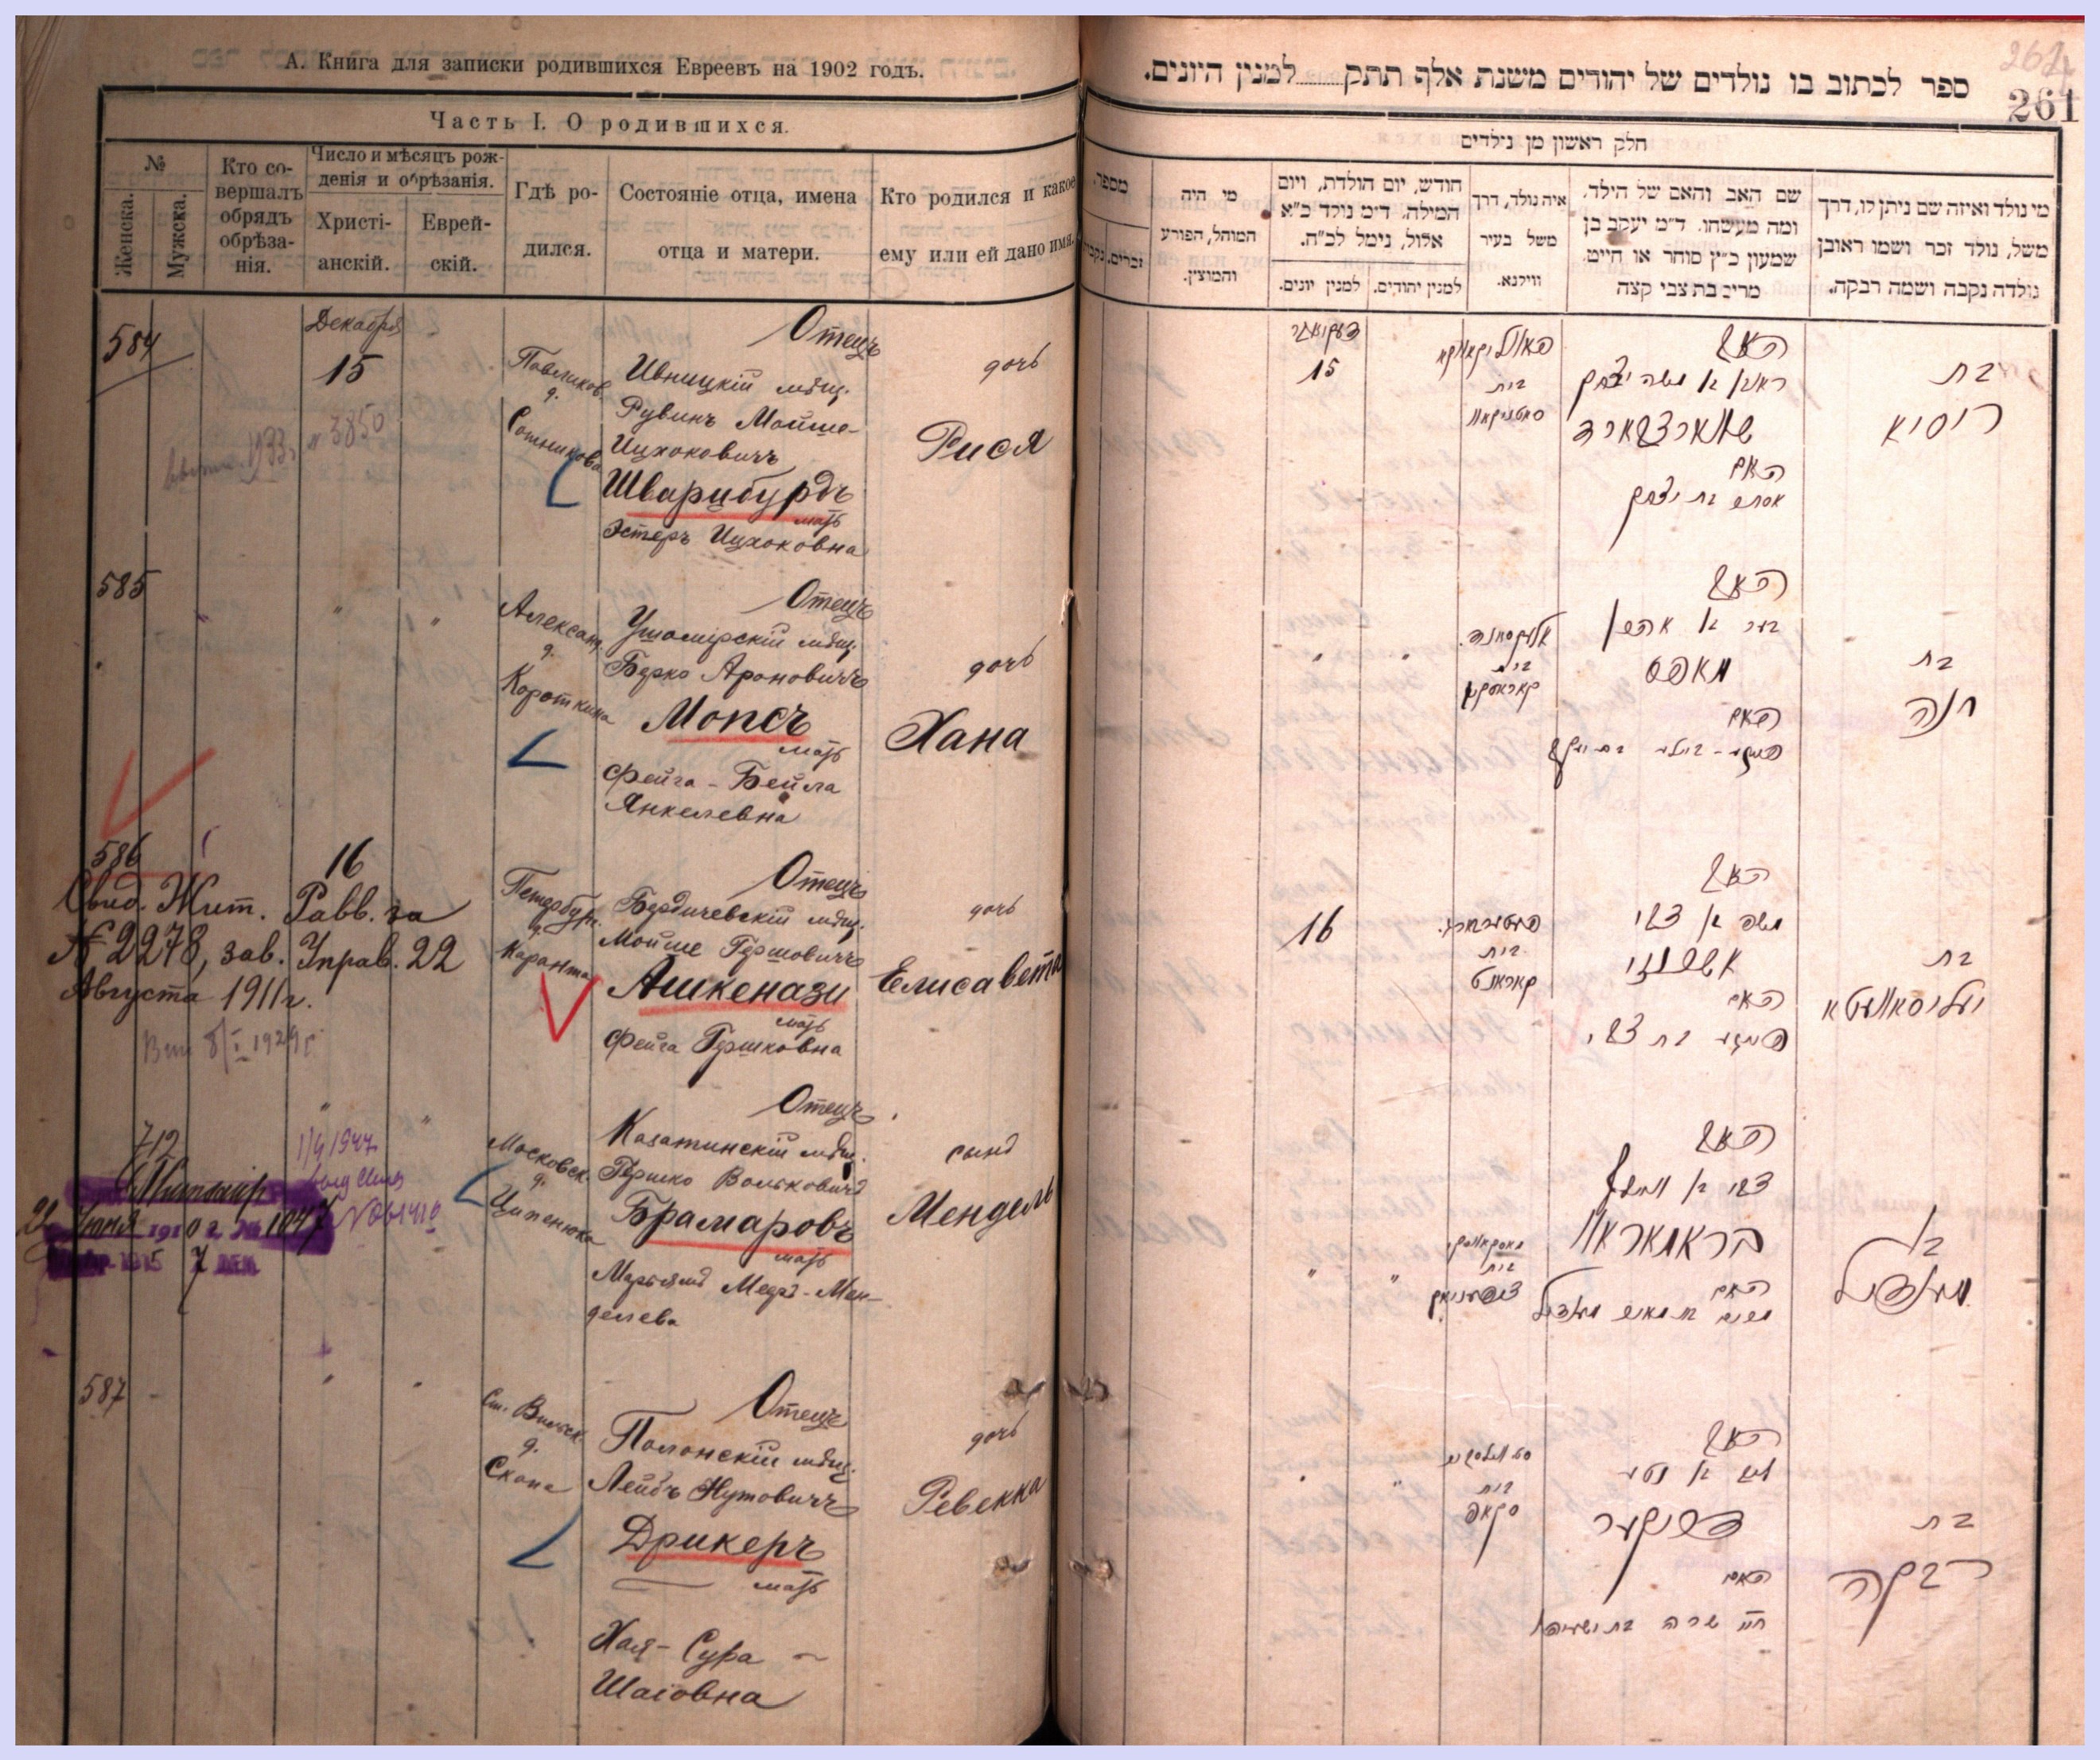 А. Книга для записки родившихся Евреевъ на 1902 годъ.
Часть I. О родившихся.
№
Женска.
Мужска.
Кто со-
вершалъ
обрядъ
обрѣза-
нія.
Число и мѣсяцъ рож-
денія и обрѣзанія.
Христі-
анскій.
Еврей-
скій.
Гдѣ ро-
дился.
Состояніе отца, имена
отца и матери.
Кто родился и какое
ему или ей дано имя.
584
Декабря
15
Павликов.
д.
Сотникова
Отецъ
Ивницкій мѣщ.
Рувинъ Мойше-
Ицхоковичъ
Шварцбурдъ
мать
Эстеръ Ицхоковна
дочь
Рися
1933
№ 3850
585
Александ.
д.
Короткина
Отецъ
Ушомірскій мѣщ.
Берко Ароновичъ
Мопсъ
мать
Фейга-Бейла
Янкелевна
дочь
Хана
586
16
Свид. Жит. Равв. за
№ 2278, зав. Управ. 22
Августа 1911г.
8/I 1929 г.
Петербург.
д.
Каранта
Отецъ
Бердичевскій мѣщ.
Мойше Гершовичъ
Ашкенази
мать
Фейга Гершковна
дочь
Елисавета
712
1/4 1947
22 Іюня 1910 г. № 1047
1915 7
Московск.
д.
Ципенюка
Отецъ
Казатинскій мѣщ.
Гершко Вольковичъ
Брамаровъ
мать
Марьямъ Мееръ-Мен-
делева
сынъ
Мендель
587
Ст. Вильск.
д.
Скопа
Отецъ
Полонскій мѣщ.
Лейбъ Нутовичъ
Дрикеръ
мать
Хая-Сура
Шаіовна
дочь
Ревекка
261
ספר לכתוב בו נולדים של יהודים משנת אלף תתק למנין היונים.
חלק ראשון מן נילדים
מי נולד ואיזה שם ניתן לו, דרך
משל, נולד זכר ושמו ראובן
נולדה נקבה ושמה רבקה.
שם האב והאם של הילד.
ומה מעשהו. ד״מ יעקב בן
שמעון כ״ץ סוחר או חייט.
מרים בת צבי קצה
איה נולד, דרך
משל בעיר
ווילנא.
חודש, יום הולדת, ויום
המילה. ד״מ נולד כ״א
אלול, נימל לכ״ח.
למנין יהודים.
למנין יונים.
מי היה
המוהל, הפורע
והמוצץ.
מספר.
זכרים.
נקבה
15
האב
ראובן בן משה יצחק
שווארצבארד
האם
אסתר בת יצחק
בית
בת
ריסיא
האב
בער בן אהרן
מאפס
האם
פייגא-ביילא בת יעקב
אלעקסאנד.
בית
בת
חנה
16
האב
משה בן צבי
אשכנזי
האם
פייגא בת צבי
בית
קאראנט
בת
יעליסאוועטא
האב
צבי בן וואלף
בראמאראוו
האם
מרים בת מאיר מענדיל
בית
בן
מענדיל
האב
ליב בן נטע
דריקער
האם
חי׳ שרה בת ישעיהו
בית
סקאפ
בת
רבקה